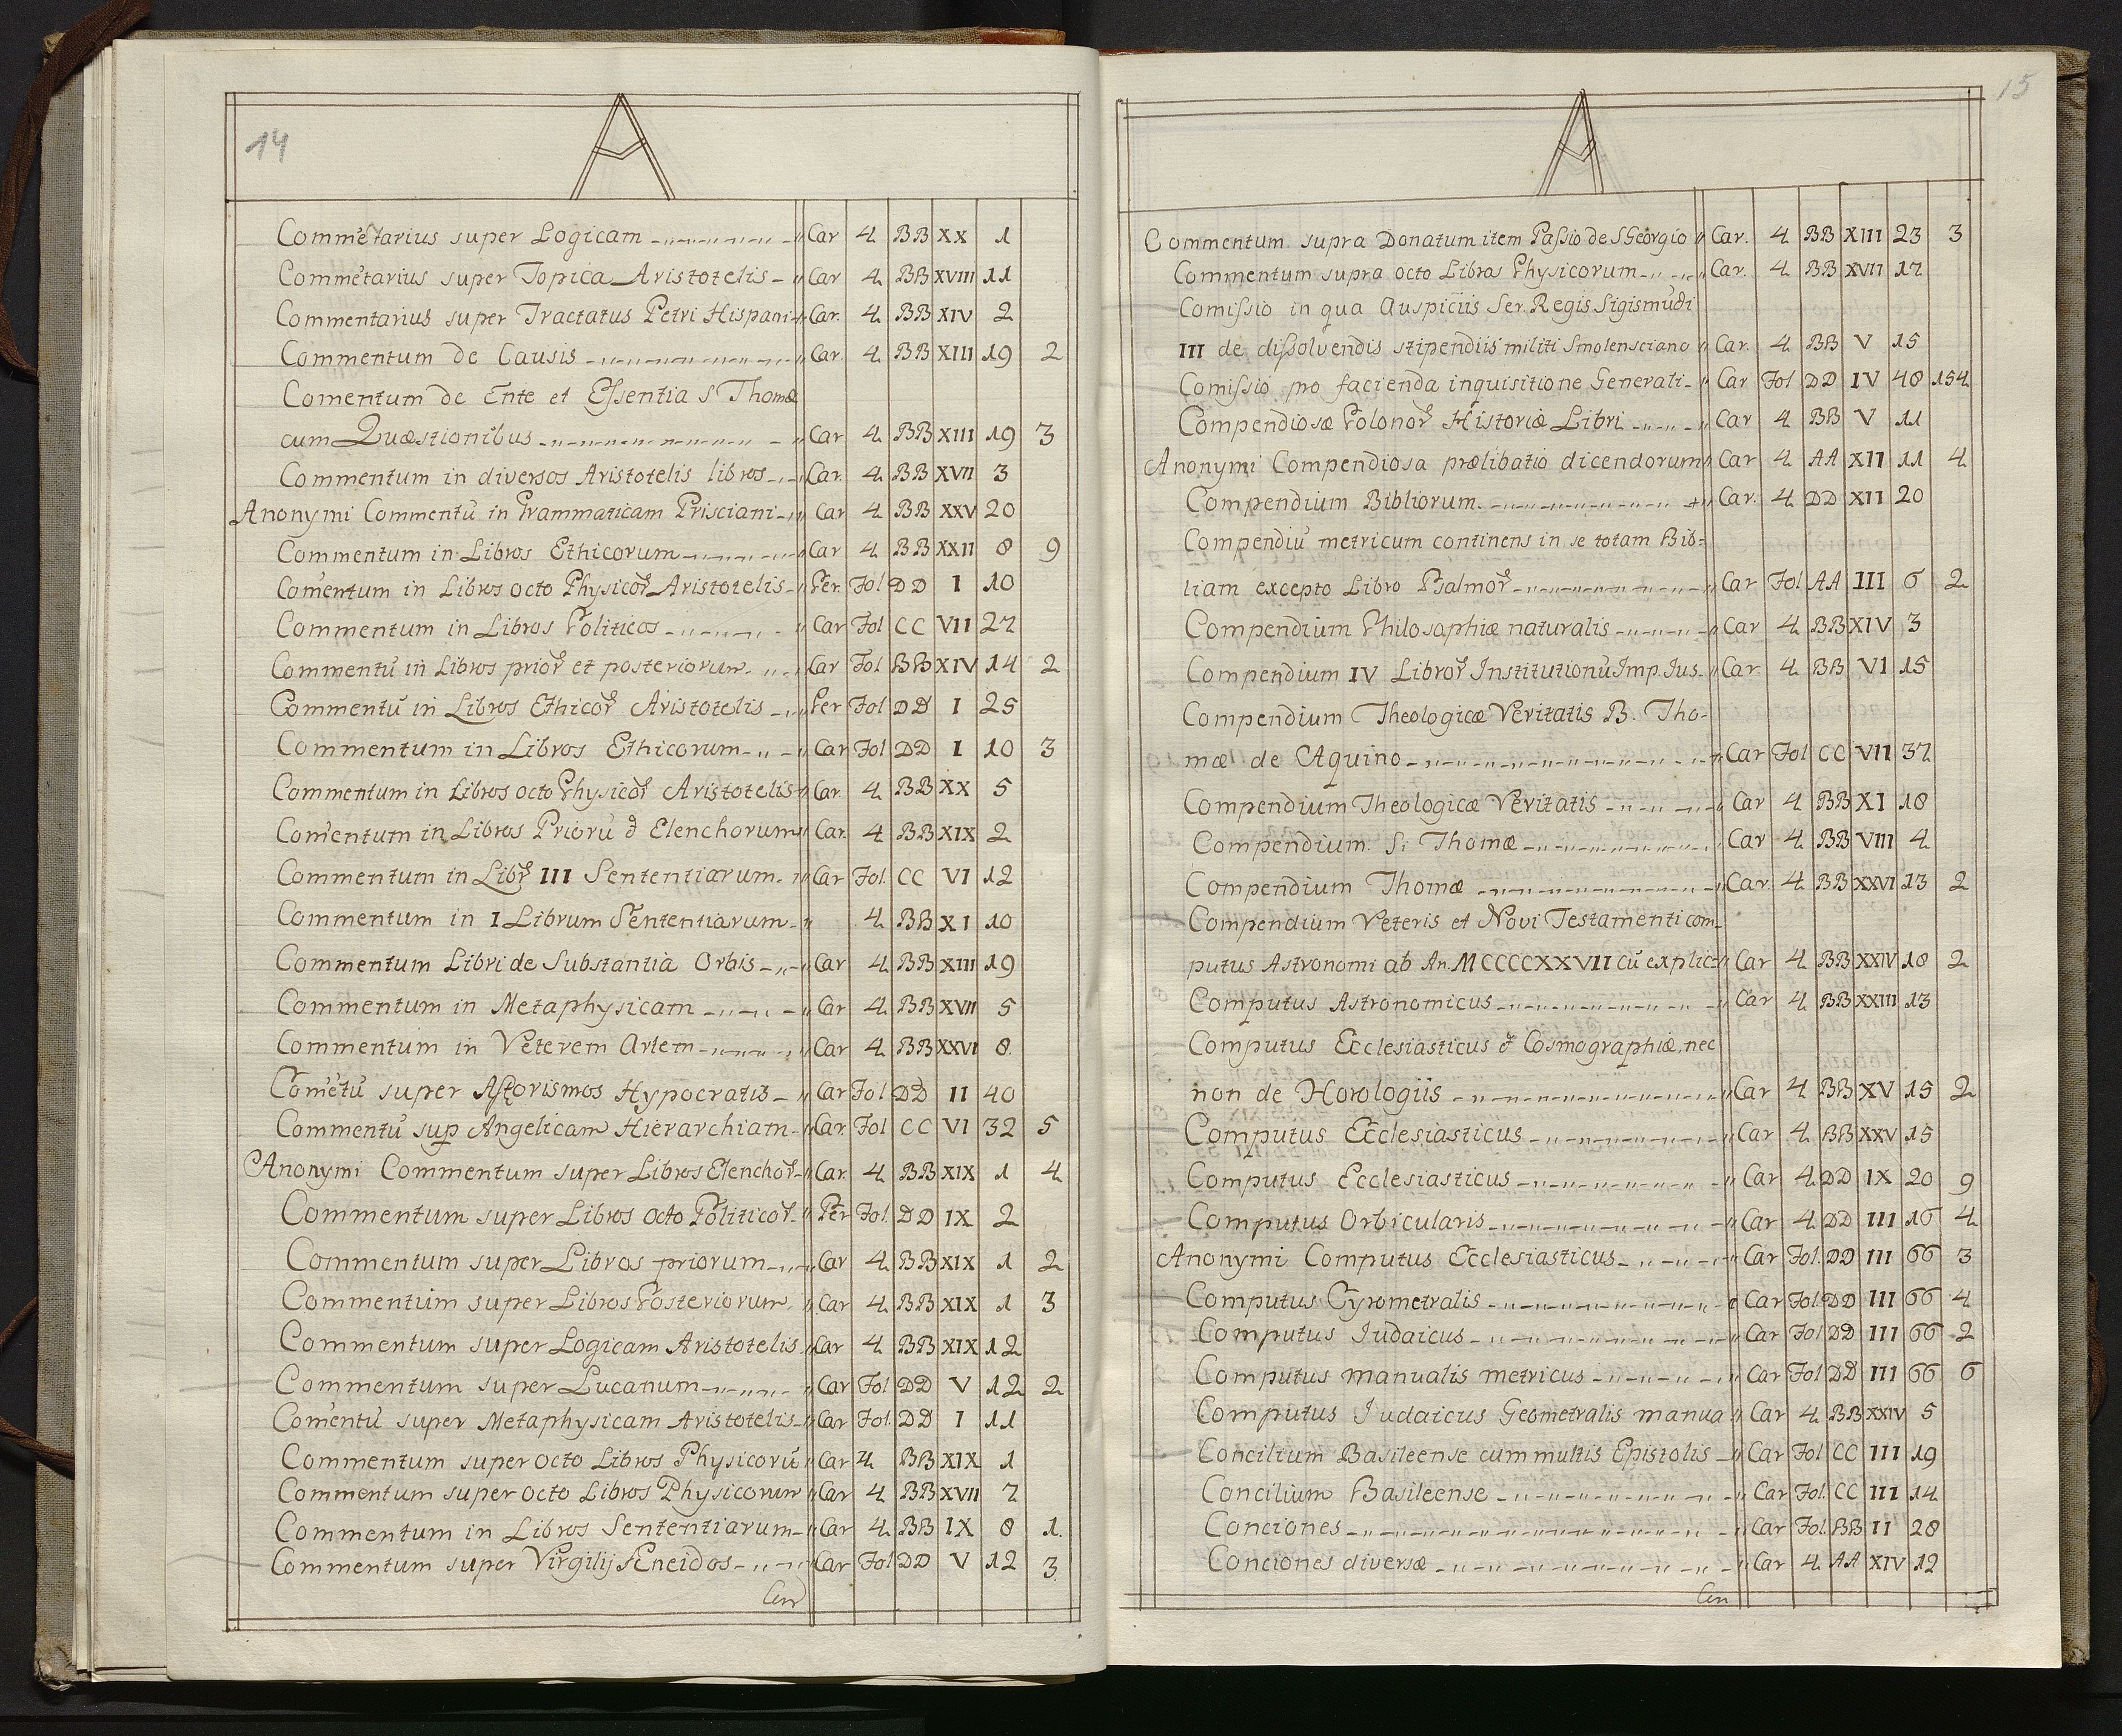 14
A
Comme᷉tarius super Logicam Car 4 BB XX 1
Comme᷉tarius super Topica Aristotelis Car 4 BB XVIII 11
Commentarius super Tractatus Petri Hispani Car. 4 BB XIV 2
Commentum de Causis Car. 4 BB XIII 19 2
Comentum de Ente et Essentia S Thomæ
cum Quæstionibus Car 4 BB XIII 19 3
Commentum in diversos Aristotelis libros Car. 4 BB XVII 3
Anonymi Commentu᷉ in Grammaticam Prisciani Car 4 BB XXV 20
Commentum in Libros Ethicorum Car 4 BB XXII 8 9
Com᷉entum in Libros octo Physicoꝝ Aristotelis Per. Fol DD I 10
Commentum in Libros Politicos Car Fol CC VII 27
Commentu᷉ in Libros prioꝝ et posteriorum Car Fol BB XIV 14 2
Commentu᷉ in Libros Ethicoꝝ Aristotelis Per Fol DD I 25
Commentum in Libros Ethicorum Car Fol DD I 10 3
Commentum in Libros octo Physicoꝝ Aristotelis Car. 4 BB XX 5
Com᷉entum in Libros Prioru᷉ & Elenchorum Car. 4 BB XIX 2
Commentum in Libꝝ III Sententiarum Car Fol. CC VI 12
Commentum in I Librum Sententiarum 4 BB XI 10
Commentum Libri de Substantia Orbis Car 4 BB XIII 19
Commentum in Metaphysicam Car 4 BB XVII 5
Commentum in Veterem Artem Car 4 BB XXVI 8.
Com᷉e᷉tu᷉ super Hypocratis Car Fol DD II 40
Commentu᷉ sup Angelicam Hierarchiam Car Fol CC VI 32 5
Anonymi Commentum super Libros Elenchoꝝ Car. 4 BB XIX 1 4
Commentum super Libros octo Politicoꝝ Per Fol. DD IX 2
Commentum super Libros priorum Car 4 BB XIX 1 2
Commentum super Libros Posteriorum Car 4 BB XIX 1 3
Commentum super Logicam Aristotelis Car 4 BB XIX 12
Commentum super Lucanum Car Fol DD V 12 2
Com᷉entu᷉ super Metaphysicam Aristotelis Car Fol. DD I 11
Commentum super octo Libros Physicoru᷉ Car 4 BB XIX 1
Commentum super octo Libros Physicorum Car 4 BB XVII 7
Commentum in Libros Sententiarum Car 4 BB IX 8 1.
Commentum super Virgilij Æneidos Car Fol DD V 12 3.
15
A
Commentum supra Donatum item Passio de S Georgio Car. 4 BB XIII 23 3
Commentum supra octo Libros Physicorum Car. 4 BB XVII 17
Comissio in qua Auspiciis Ser. Regis Sigismu᷉di
III de dissolvendis stipendiis militi Smolensciano Car. 4 BB V 15
Comissio pro facienda inquisitione Generali Car Fol DD IV 48 154
Compendiosæ Polonoꝝ Historiæ Libri Car 4 BB V 11
Anonymi Compendiosa prælibatio dicendorum Car 4 AA XII 11 4
Compendium Bibliorum Car. 4 DD XII 20
Compendiu᷉ metricum continens in se totam Bib=
liam excepto Libro Psalmoꝝ Car Fol AA III 6 2
Compendium Philosophiæ naturalis Car 4 BB XIV 3
Compendium IV Libroꝝ Institutionu᷉ Imp. Jus. Car. 4 BB VI 15
Compendium Theologicæ Veritatis B. Tho-
mæ de Aquino Car Fol CC VII 37
Compendium Theologicæ Veritatis Car 4 BB XI 18
Compendium S. Thomæ Car 4 BB VIII 4
Compendium Thomæ Car. 4 BB XXVI 13 2
Compendium Veteris et Novi Testamenti com-
putus Astronomi ab An. MCCCCXXVII cu᷉ explic: Car 4 BB XXIV 18 2
Computus Astronomicus Car 4 BB XXIII 13
Computus Ecclesiasticus & Cosmographiæ, nec
non de Horologiis Car 4 BB XV 15 2
Computus Ecclesiasticus Car 4 BB XXV 15
Computus Ecclesiasticus Car 4 DD IX 20 9
Computus Orbicularis Car 4 DD III 16 4
Anonymi Computus Ecclesiasticus Car Fol. DD III 66 3
Computus Cyrometralis Car Fol DD III 66 4
Computus Iudaicus Car Fol DD III 66 2
Computus manualis metricus Car Fol DD III 66 6
Computus Iudaicus Geometralis manua Car 4 BB XXIV 5
Concilium Basileense cum multis Epistolis Car Fol CC III 19
Concilium Basileense Car Fol. CC III 14
Conciones Car Fol. BB II 28
Conciones diversæ Car 4 AA XIV 12